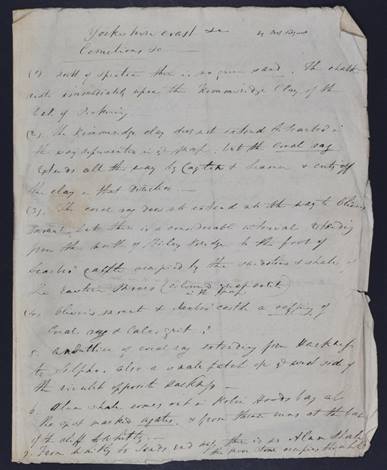 Yorkshire coast &c by
Corrections &c
(1) South of Speeton there is no green sand. The chalk
rests immediately upon the Kimmeridge Clay of the
Vale of Pickering
(2) The Kimmeridge clay does not extend to Scarbro in
the way represented in map. but the coral rag
extends all the way by Cayton & Seamer & cuts off
the clay in that direction —
(3). The coral rag does not extend all the way to Oliver's
Mount but there is a considerable interval extending
from the north of Filey Bridge to the foot of
Scarbro castle occupied by the sandstone & shale of
the Eastern Moors (coloured
in the map)
(4) Oliver's mount & Scarbro castle a capping of
Coral rag & Calc grit ;
5. of coral rag extending from Hackness
to also a small patch up west side of
the rivulet opposite Hackness —
6. Alum shale comes out in Robin Hoods bay at
the & from thence runs at the base
of the cliff to Whitby —
7. From Whitby to there is no Alum Shale
the